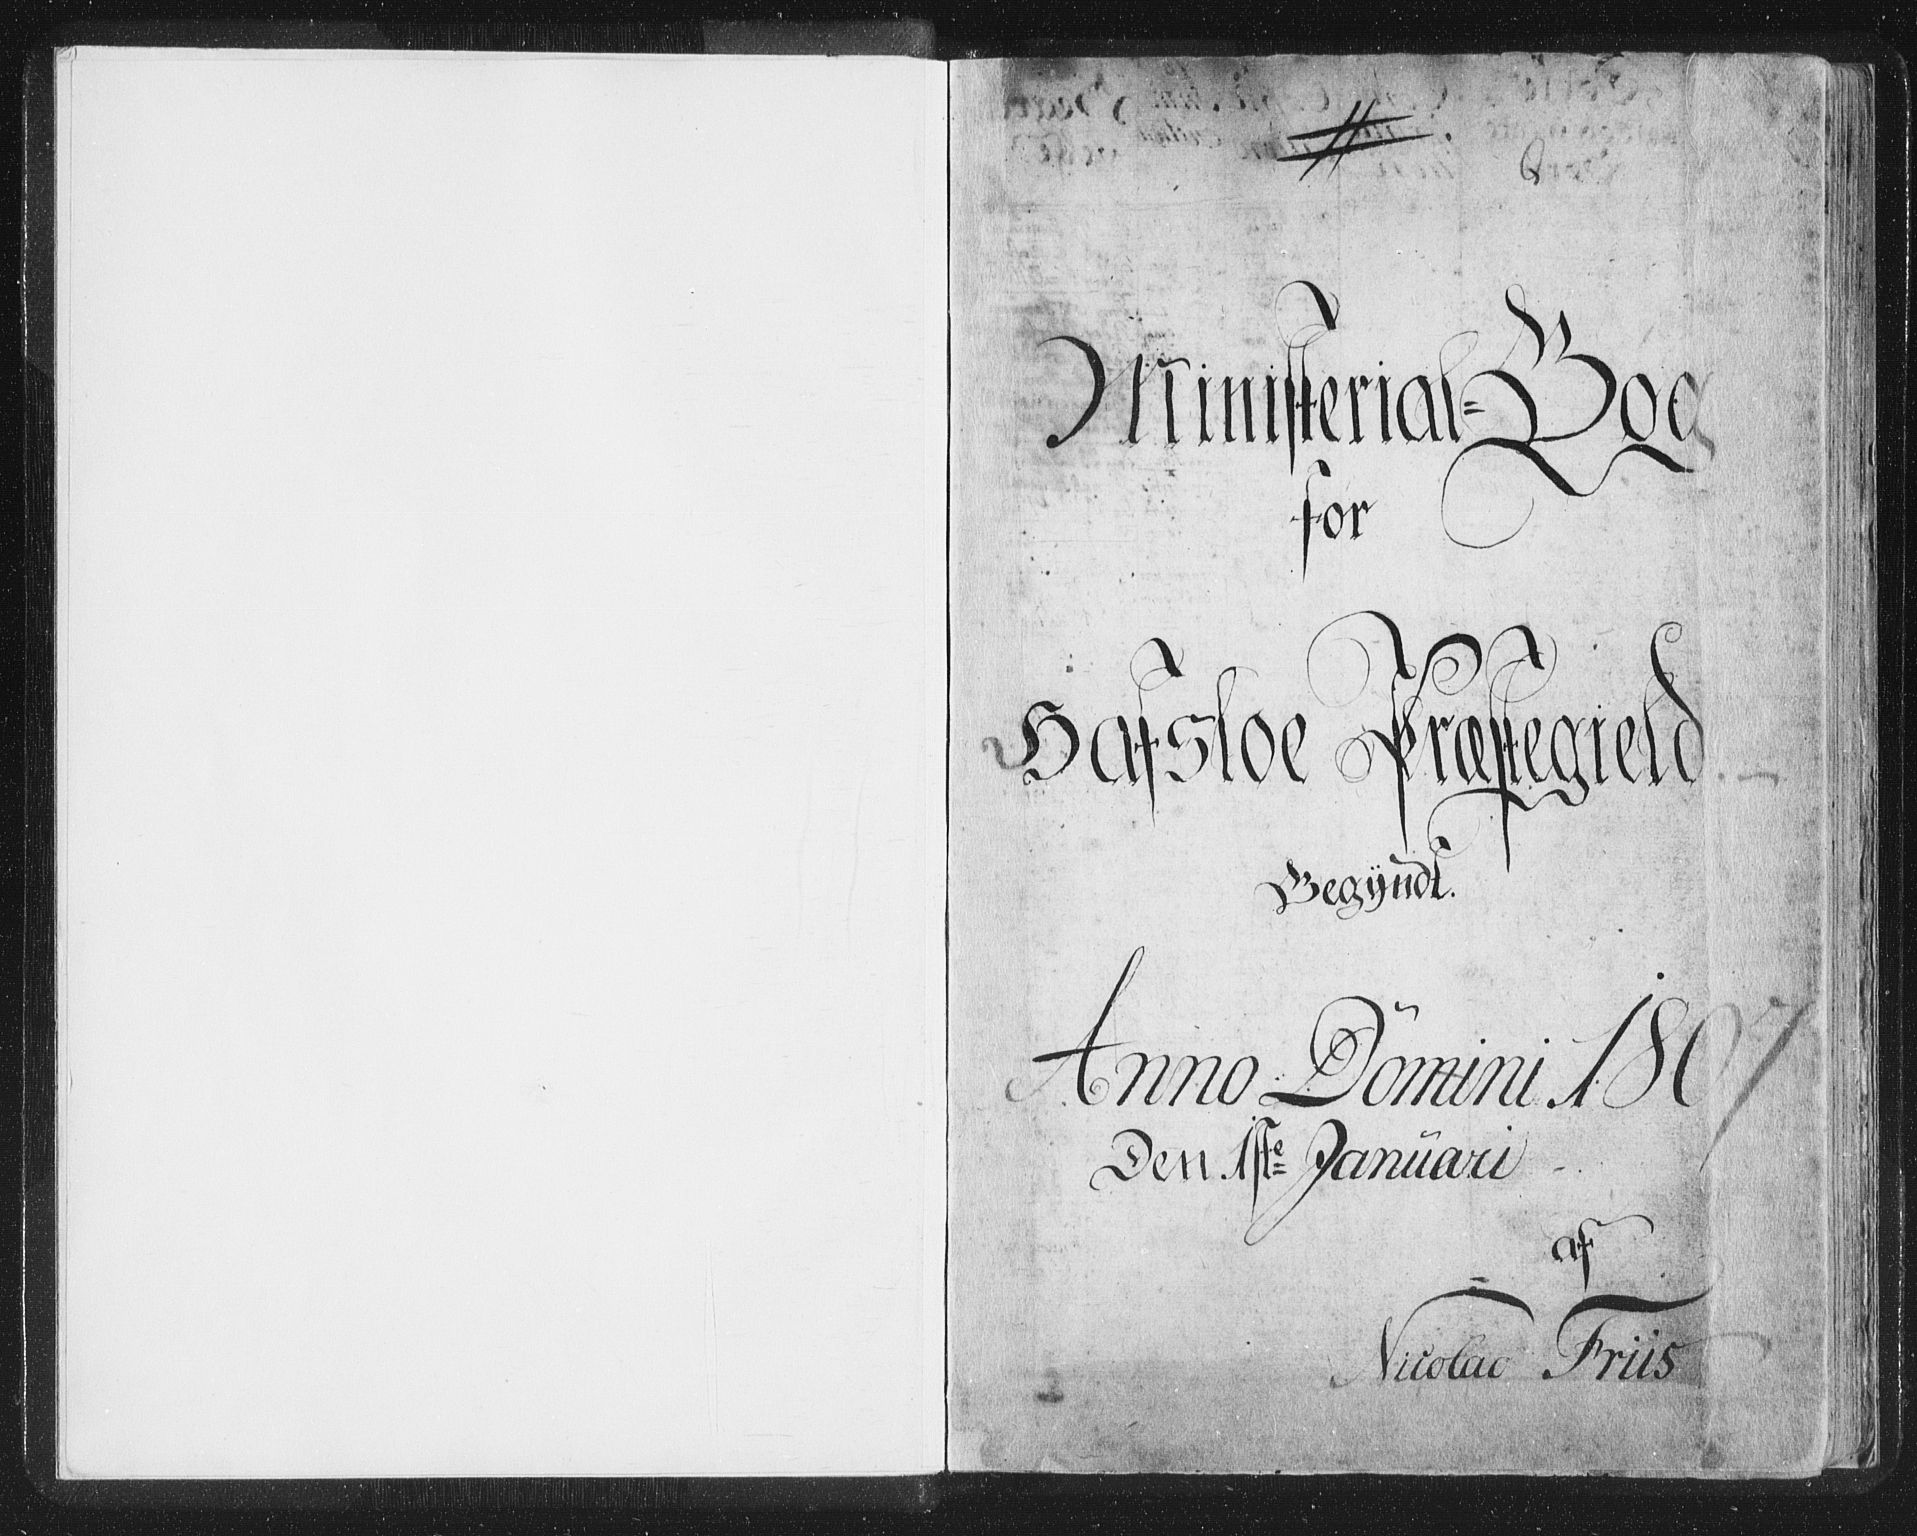 Ministerial=Bog
for
Hafsloe Præstegield
Begÿndt.
Anno Domini 1807
Den 1ste Januari
af
Nicolac Friis